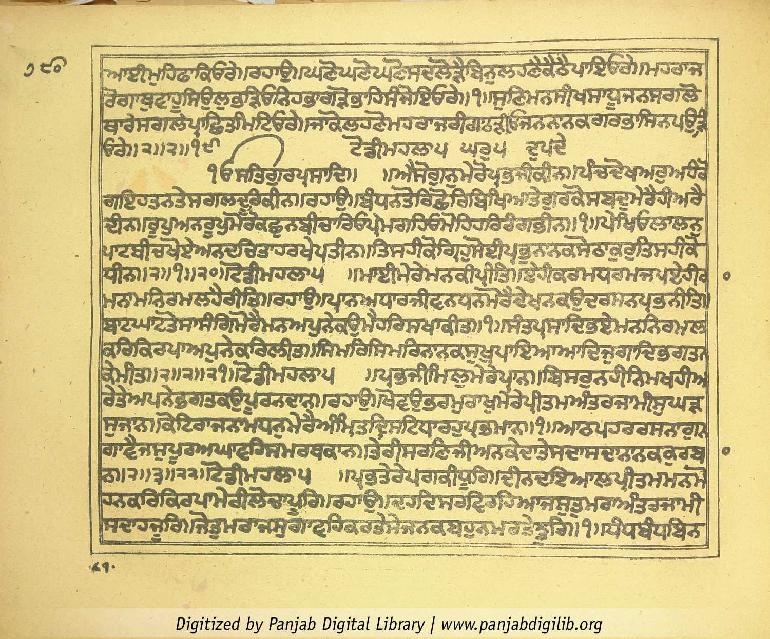 ੭੬੦
ਆਈਮੋਹਿਫਾਕਿਓਰੇ॥ਰਹਾਉ॥ਘਣੋਘਣੋਘਣੋਸਦਲੋੜੈਬਿਨੁਲਹਣੇਕੈਠੈਪਾਇਓਰੇ॥ਮਹਰਾਜ
ਰੋਗਾਥੁਵਾਹੂਸਿਉਲੁਭੜਿਓਨਿਹਭਾਗੜੋਭਾਹਿਸੰਜੋਇਓਰੇ॥੧॥ਸੁਣਿਮਨਸੀਖਸਾਧੂਜਨਸਗਲੋ
ਥਾਰੇਸਗਲੇਪ੍ਰਾਛਿਤਮਿਟਿਓਰੇ॥ਜਾਕੋਲਹਣੋਮਹਰਾਜਰੀਗਾਠੜੀਓਜਨਨਾਨਕਗਰਭਾਸਿਨਪਉੜਿ
ਓਰੇ॥੨॥੨॥੧੯ ਟੋਡੀਮਹਲਾ੫ ਘਰੁ੫ ਦੁਪਦੇ
ੴਸਤਿਗੁਰਪ੍ਰਸਾਦਿ॥ ॥ਐਸੋਗੁਨੁਮੇਰੋਪ੍ਰਭਜੀਕੀਨ॥ਪੰਚਦੋਖਅਰੁਅਹੰਰੋ
ਗਇਹਤਨਤੇਸਗਲਦੂਰਿਕੀਨ॥ਰਹਾਉ॥ਬੰਧਨਤੋਰਿਛੋਰਿਬਿਖਿਆਤੇਗੁਰਕੋਸਬਦੁਮੇਰੈਹੀਅਰੈ
ਦੀਨ॥ਰੂਪੁਅਨਰੂਪੁਮੋਰੋਕਛੁਨਬੀਚਾਰਿਓਪ੍ਰੇਮਗਹਿਓਮੋਹਿਹਰਿਰੰਗਭੀਨ॥੧॥ਪੇਖਿਓਲਾਲਨੁ
ਪਾਟਬੀਚਖੋਏਅਨਦਚਿਤਾਹਰਖੇਪਤੀਨ॥ਤਿਸਹੀਕੋਗ੍ਰਿਹੁਸੋਈਪ੍ਰਭੁਨਾਨਕਸੋਠਾਕੁਰੁਤਿਸਹੀਕੋ
ਧੀਨ॥੨॥੧॥੨੦॥ਟੋਡੀਮਹਲਾ੫ ॥ਮਾਈਮੇਰੇਮਨਕੀਪ੍ਰੀਤਿ॥ਏਹੀਕਰਮਧਰਮਜਪਏਹੀਰਾ
ਮਨਾਮਨਿਰਮਲਹੈਰੀਤਿ॥ਰਹਾਉ॥ਪ੍ਰਾਨਅਧਾਰਜੀਵਨਧਨਮੋਰੈਦੇਖਨਕਉਦਰਸਨਪ੍ਰਭਨੀਤਿ॥
ਬਾਟਘਾਟਤੋਸਾਸੰਗਿਮੋਰੈਮਨਅਪੁਨੇਕਉਮੈਹਰਿਸਖਾਕੀਤ॥੧॥ਸੰਤਪ੍ਰਸਾਦਿਭਏਮਨਨਿਰਮਲ
ਕਰਿਕਿਰਪਾਅਪੁਨੇਕਰਿਲੀਤ॥ਸਿਮਰਿਸਿਮਰਿਨਾਨਕਸੁਖੁਪਾਇਆਆਦਿਜੁਗਾਦਿਭਗਤਨ
ਕੇਮੀਤ॥੨॥੨॥੨੧॥ਟੋਡੀਮਹਲਾ੫ ॥ਪ੍ਰਭਜੀਮਿਲੁਮੇਰੇਪ੍ਰਾਨ॥ਬਿਸਰੁਨਹੀਨਿਮਖਹੀਅ
ਰੇਤੇਅਪਨੇਭਗਤਕਉਪੂਰਨਦਾਨ॥ਰਹਾਉ॥ਖੋਵਹੁਭਰਮੁਰਾਖੁਮੇਰੇਪ੍ਰੀਤਮਅੰਤਰਜਾਮੀਸੁਘੜ
ਸੁਜਾਨ॥ਕੋਟਿਰਾਜਨਾਮਧਨੁਮੇਰੈਅੰਮ੍ਰਿਤਦ੍ਰਿਸਟਿਧਾਰਹੁਪ੍ਰਭਮਾਨ॥੧॥ਆਠਪਹਰਰਸਨਾਗੁਨ
ਗਾਵੈਜਸੁਪੂਰਿਅਘਾਵਹਿਸਮਰਥਕਾਨ॥ਤੇਰੀਸਰਣਿਜੀਅਨਕੇਦਾਤੇਸਦਾਸਦਾਨਾਨਕਕੁਰਬਾ
ਨ॥੨॥੩॥੨੨॥ਟੋਡੀਮਹਲਾ੫ ॥ਪ੍ਰਭਤੇਰੇਪਗਕੀਧੂਰਿ॥ਦੀਨਦਇਆਲਪ੍ਰੀਤਮਮਨਮੋ
ਹਨਕਰਿਕਿਰਪਾਮੇਰੀਲੋਚਾਪੂਰਿ॥ਰਹਾਉ॥ਦਹਦਿਸਰਵਿਰਹਿਆਜਸੁਤੁਮਰਾਅੰਤਰਜਾਮੀ
ਸਦਾਹਜੂਰਿ॥ਜੋਤੁਮਰਾਜਸੁਗਾਵਹਿਕਰਤੇਸੇਜਨਕਬਹੁਨਮਰਤੇਝੂਰਿ॥੧॥ਧੰਧਬੰਧਬਿਨ
Digitized by Panjab Digital Library | www.panjabdigilib.org